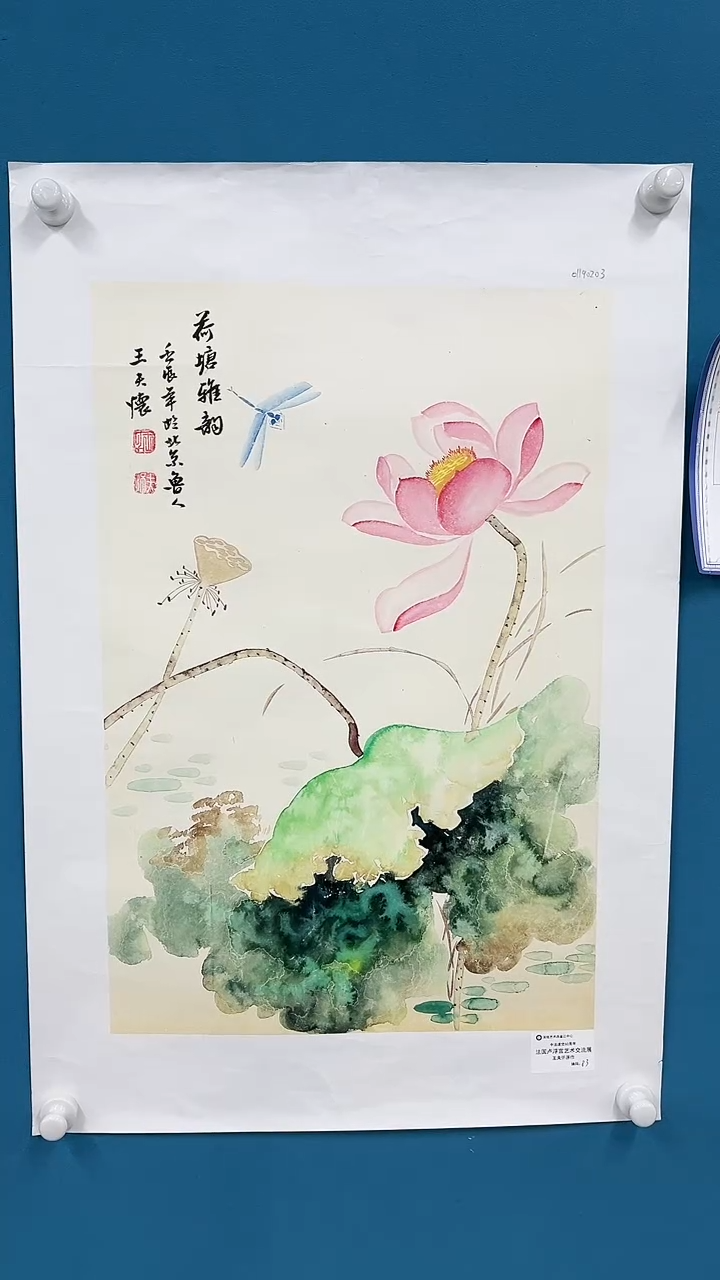 荷塘雅韵
壬辰年於北京鲁人
王天怀
e1190203
法国卢浮宫艺术交流展
编号: 83